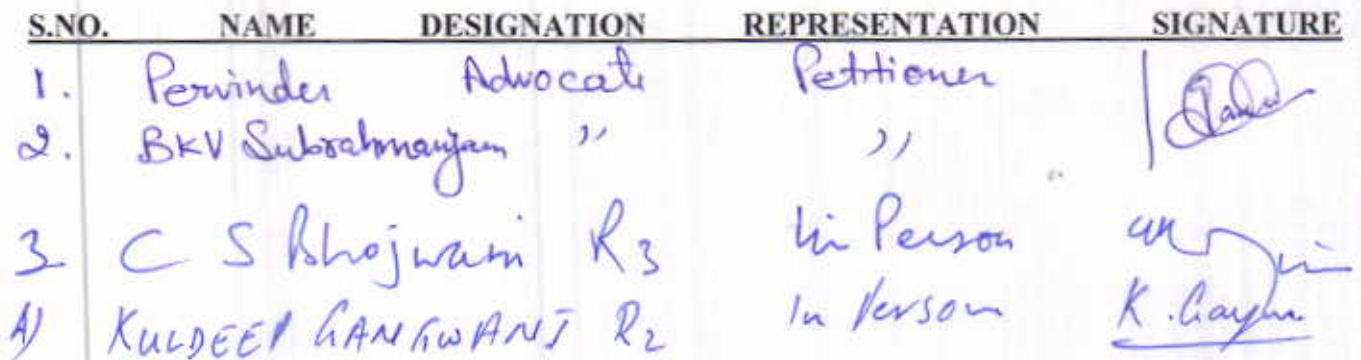 S.NO. NAME DESIGNATION REPRESENTATION SIGNATURE
1. Pervinder Advocate Petitioner
2. BKV Subrahmanyam " "
3 C S Bhojwani R3 In Person
4) KULDEEP GANGWANI R2 In Person K.